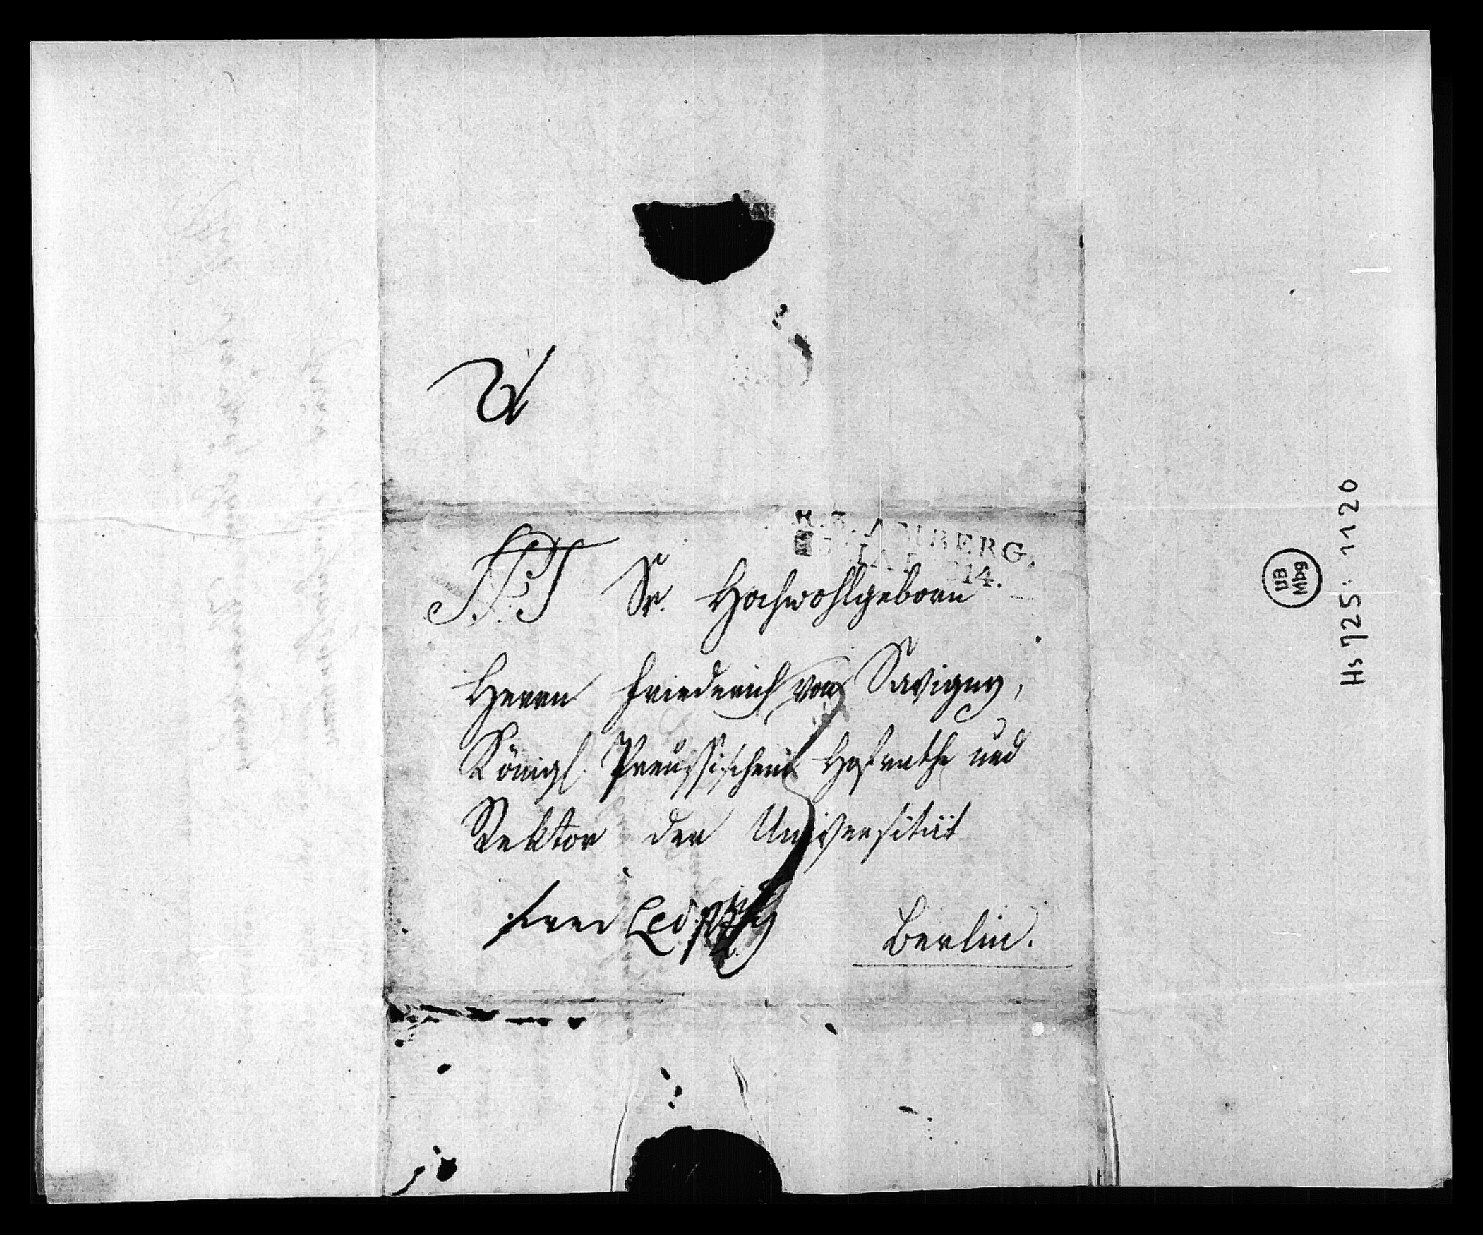 R. 3. AMBERG.
214.
P.P. Sr. Hochwohlgeborn
Herrn Friederich von Savigny,
Königl. Preussischem Hofrathe und
Rektor der Universität
frei Leipzig
Berlin.
UB
Mbg
Hs 725:1120